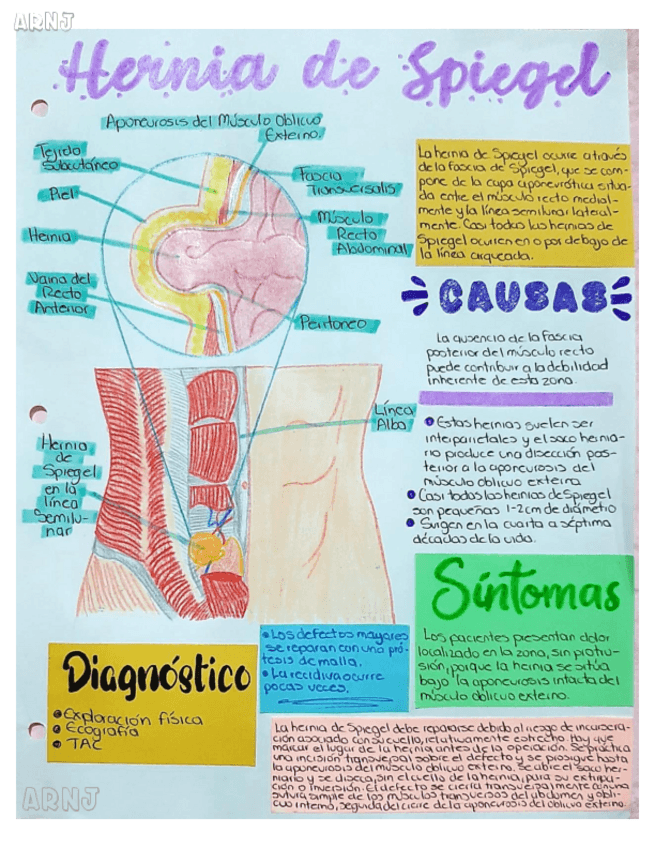 ARNJ
Hernia de Spiegel
Aponeurosis del Músculo Oblicuo
Externo.
Tejido
Subcutáneo
Piel
Hernia
Vaina del
Recto
Anterior
Fascia
Transversalis
Músculo
Recto
Abdominal
Peritoneo
La hernia de Spiegel ocurre a través
de la fascia de Spiegel, que se com-
pone de la capa aponeurótica situa-
da entre el músculo recto medial-
mente y la línea semilunar lateral-
mente. Casi todas las hernias de
Spiegel ocurren en o por debajo de
la línea arqueada.
CAUSAS
La ausencia de la fascia
posterior del músculo recto
puede contribuir a la debilidad
inherente de esta zona.
Línea
Alba
Hernia
de
Spiegel
en la
línea
Semilu-
nar
• Estas hernias suelen ser
interparietales y el saco hernia-
rio produce una disección pos-
terior a la aponeurosis del
músculo oblicuo externo
• Casi todas las hernias de Spiegel
son pequeñas 1-2cm de diámetro
• Surgen en la cuarta a séptima
décadas de la vida.
Síntomas
Los pacientes presentan dolor
localizado en la zona, sin protru-
sión, porque la hernia se sitúa
bajo la aponeurosis intacta del
músculo oblicuo externo.
Diagnóstico
• Exploración física
• Ecografía
• TAC
• Los defectos mayores
se reparan con una pró-
tesis de malla.
• La recidiva ocurre
pocas veces.
La hernia de Spiegel debe repararse debido al riesgo de incarcera-
ción asociado con su cuello, relativamente estrecho. Hay que
marcar el lugar de la hernia antes de la operación. Se practica
una incisión transversal sobre el defecto y se prosigue hasta
la aponeurosis del músculo oblicuo externo. Se abre el saco her-
niario y se diseca, sin el cuello de la hernia, para su extirpa-
ción o inversión. El defecto se cierra transversalmente con una
sutura simple de los músculos transversos del abdomen y obli-
cuo interno, seguida del cierre de la aponeurosis del oblicuo externo.
ARNJ